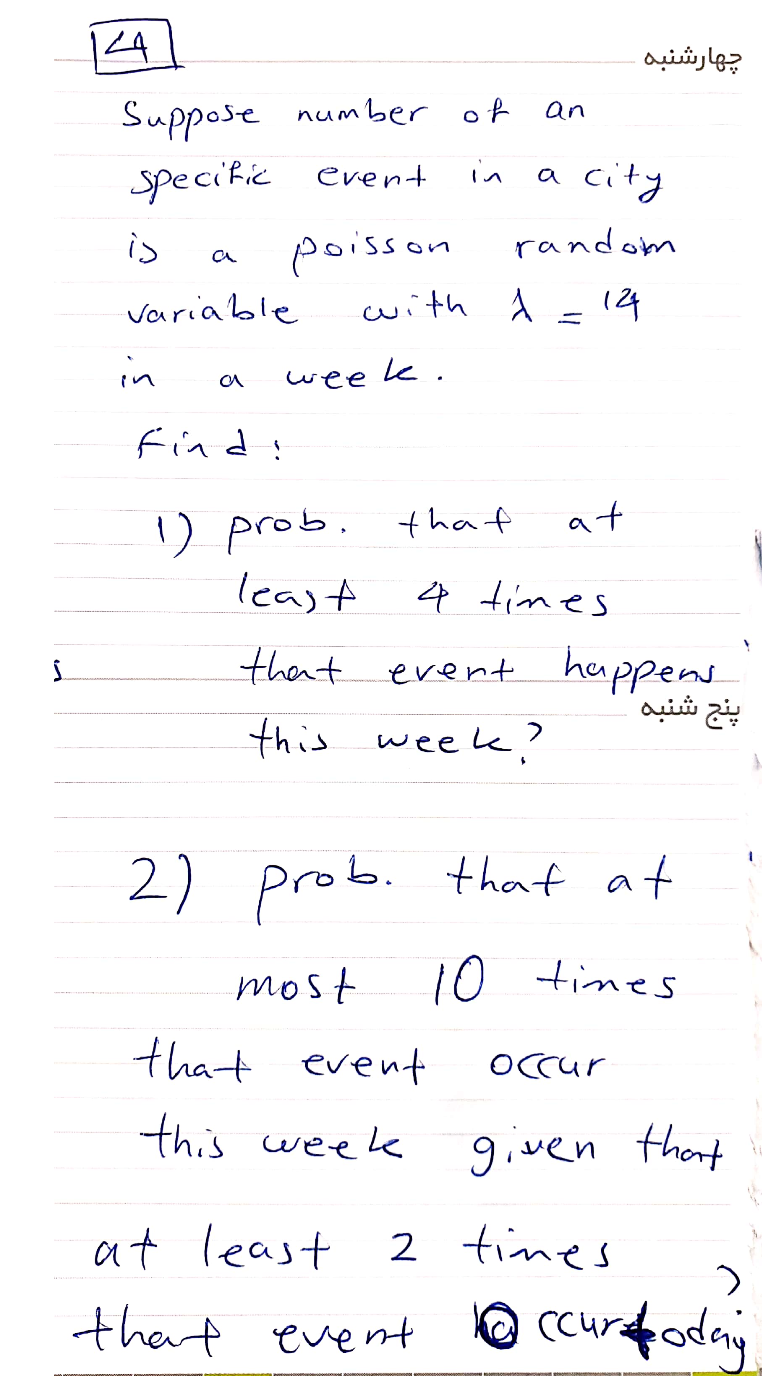 چهارشنبه
Suppose number of an
specific event in a city
is a poisson random
variable with λ = 14
in a week.
Find:
1) prob. that at
least 4 times
that event happens
پنج شنبه
this week?
2) prob. that at
most 10 times
that event occur
this week given that
at least 2 times
that event occur today?